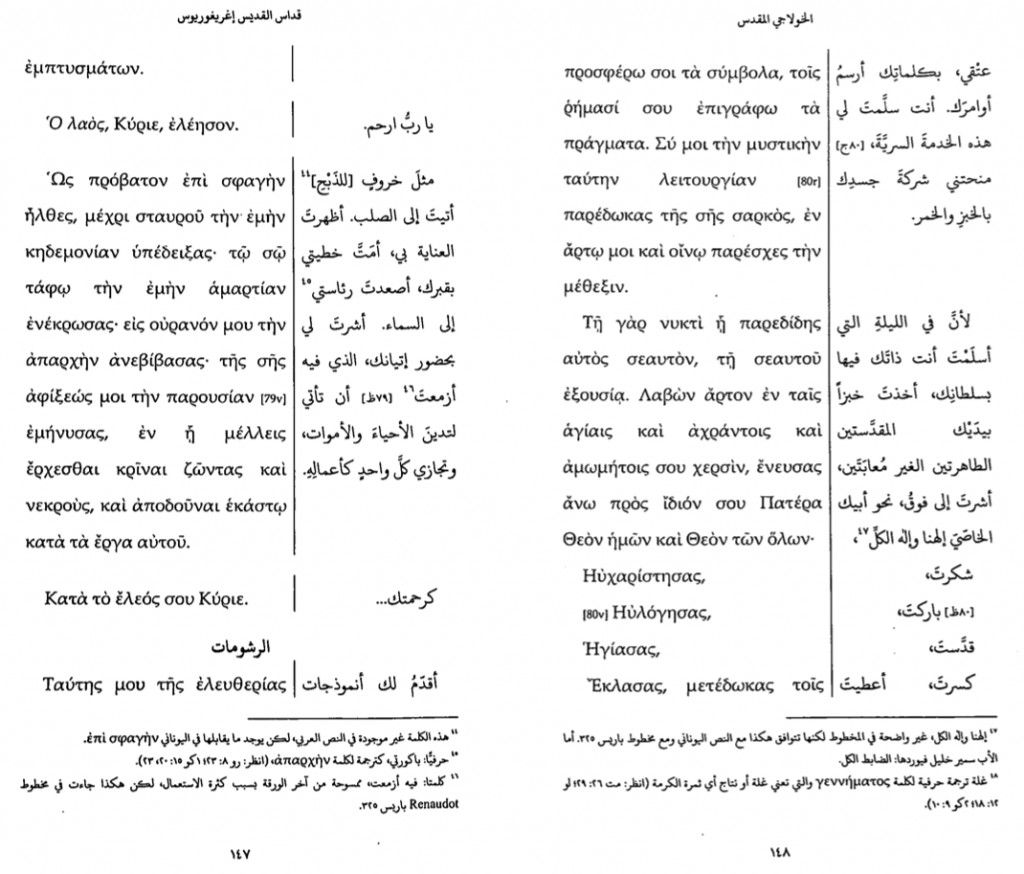 قداس القديس إغريغوريوس
ἐμπτυσμάτων.
Ὁ λαὸς, Κύριε, ἐλέησον.
يا ربُّ ارحم.
Ὡς πρόβατον ἐπὶ σφαγὴν
ἦλθες, μέχρι σταυροῦ τὴν ἐμὴν
κηδεμονίαν ὑπέδειξας· τῷ σῷ
τάφῳ τὴν ἐμὴν ἁμαρτίαν
ἐνέκρωσας· εἰς οὐρανόν μου τὴν
ἀπαρχὴν ἀνεβίβασας· τῆς σῆς
ἀφίξεώς μοι τὴν παρουσίαν [79v]
ἐμήνυσας, ἐν ᾗ μέλλεις
ἔρχεσθαι κρῖναι ζῶντας καὶ
νεκροὺς, καὶ ἀποδοῦναι ἑκάστῳ
κατὰ τὰ ἔργα αὐτοῦ.
مثلَ خروفٍ [للذَبْحِ]٤٤
أتيتَ إلى الصلب. أظهرتَ
العناية بي، أمَتَّ خطيتي
بقبرك، أصعدتَ رئاستي٤٥
إلى السماء. أشرتَ لي
بحضور إتيانك، الذي فيه
أزمعتَ٤٦ [٧٩ظ] أن تأتي
لتدينَ الأحياءَ والأموات،
وتجازي كلَّ واحدٍ كأعمالِهِ.
Κατὰ τὸ ἔλεός σου Κύριε.
كرحمتك...
الرشومات
Ταύτης μου τῆς ἐλευθερίας
أقدّمُ لك أنموذجات
٤٤ هذه الكلمة غير موجودة في النص العربي، لكن يوجد ما يقابلها في اليوناني ἐπὶ σφαγὴν.
٤٥ حرفيًّا: باكورتي، كترجمة لكلمة ἀπαρχὴν، (انظر: رو ٨: ٢٣؛ ١كو ١٥: ٢٠، ٢٣).
٤٦ كلمتا: فيه أزمعت، ممسوحة من آخر الورقة بسبب كثرة الاستعمال، لكن هكذا جاءت في مخطوط
Renaudot باريس ٣٢٥.
١٤٧
الخولاجي المقدس
προσφέρω σοι τὰ σύμβολα, τοῖς
ῥήμασί σου ἐπιγράφω τὰ
πράγματα. Σύ μοι τὴν μυστικὴν
ταύτην λειτουργίαν [80r]
παρέδωκας τῆς σῆς σαρκὸς, ἐν
ἄρτῳ μοι καὶ οἴνῳ παρέσχες τὴν
μέθεξιν.
عتْقي، بكلماتِك أرسمُ
أوامرَك. أنت سلَّمتَ لي
هذه الخدمةَ السريَّةَ، [٨٠ج]
منحتني شركةَ جسدِك
بالخبزِ والخمر.
Τῇ γὰρ νυκτὶ ᾗ παρεδίδης
αὐτὸς σεαυτὸν, τῇ σεαυτοῦ
ἐξουσίᾳ. Λαβὼν ἄρτον ἐν ταῖς
ἁγίαις καὶ ἀχράντοις καὶ
ἀμωμήτοις σου χερσὶν, ἔνευσας
ἄνω πρὸς ἴδιόν σου Πατέρα
Θεὸν ἡμῶν καὶ Θεὸν τῶν ὅλων·
لأنَّ في الليلةِ التي
أسلَمْتَ أنت ذاتَك فيها
بسلطانِك، أخذتَ خبزاً
بيدَيْك المقدَّستين
الطاهرتين الغير مُعابَتَين،
أشرتَ إلى فوقُ، نحو أبيك
الخاصّيِ إلهنا وإله الكلِّ٤٧،
Ηὐχαρίστησας,
شكرتَ،
[80v] Ηὐλόγησας,
[٨٠ظ] باركتَ،
Ἡγίασας,
قدَّستَ،
Ἔκλασας, μετέδωκας τοῖς
كسرتَ، أعطيتَ
٤٧ إلهنا وإله الكل، غير واضحة في المخطوط لكنها تتوافق هكذا مع النص اليوناني ومع مخطوط باريس ٣٢٥. أما
الأب سمير خليل فيوردها: الضابط الكل.
٤٨ غلة ترجمة حرفية لكلمة γεννήματος والتي تعني غلة أو نتاج أي ثمرة الكرمة (انظر: مت ٢٦: ٢٩؛ لو
١٢: ١٨؛ ٢كو ٩: ١٠).
١٤٨